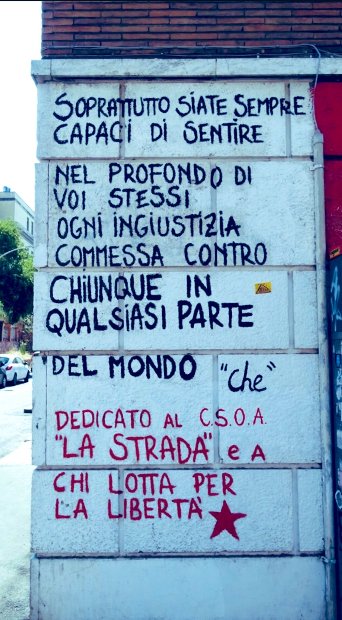 SOPRATTUTTO SIATE SEMPRE
CAPACI DI SENTIRE
NEL PROFONDO DI
VOI STESSI
OGNI INGIUSTIZIA
COMMESSA CONTRO
CHIUNQUE IN
QUALSIASI PARTE
DEL MONDO "Che"
DEDICATO AL C.S.O.A.
"LA STRADA" e A
CHI LOTTA PER
LA LIBERTÀ